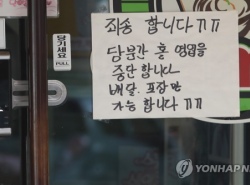 죄송 합니다ㄲㄲ
당분간 홀 영업을
중단 합니다
배달. 포장만
가능 합니다ㄲㄲ
당기세요
PULL
YONHAP NEWS